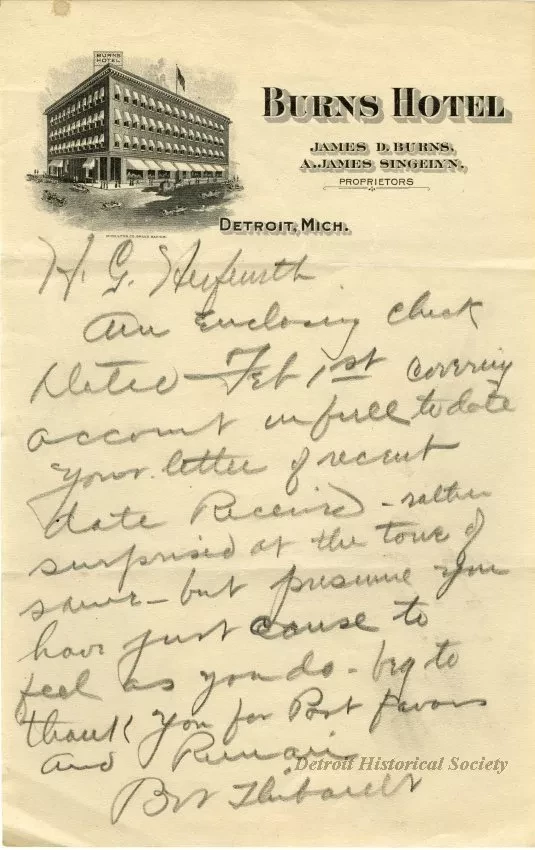 BURNS HOTEL
BURNS HOTEL
JAMES D. BURNS.
A. JAMES SINGELYN.
PROPRIETORS
DETROIT, MICH.
H. G.
Am Enclosing check
Dated - Feb 1st covering
account in full to date
your letter of recent
date Received - rather
surprised at the tone of
same - but presume you
have just cause to
feel as you do - beg to
thank you for Past favors
and Remain
Detroit Historical Society
Thibault